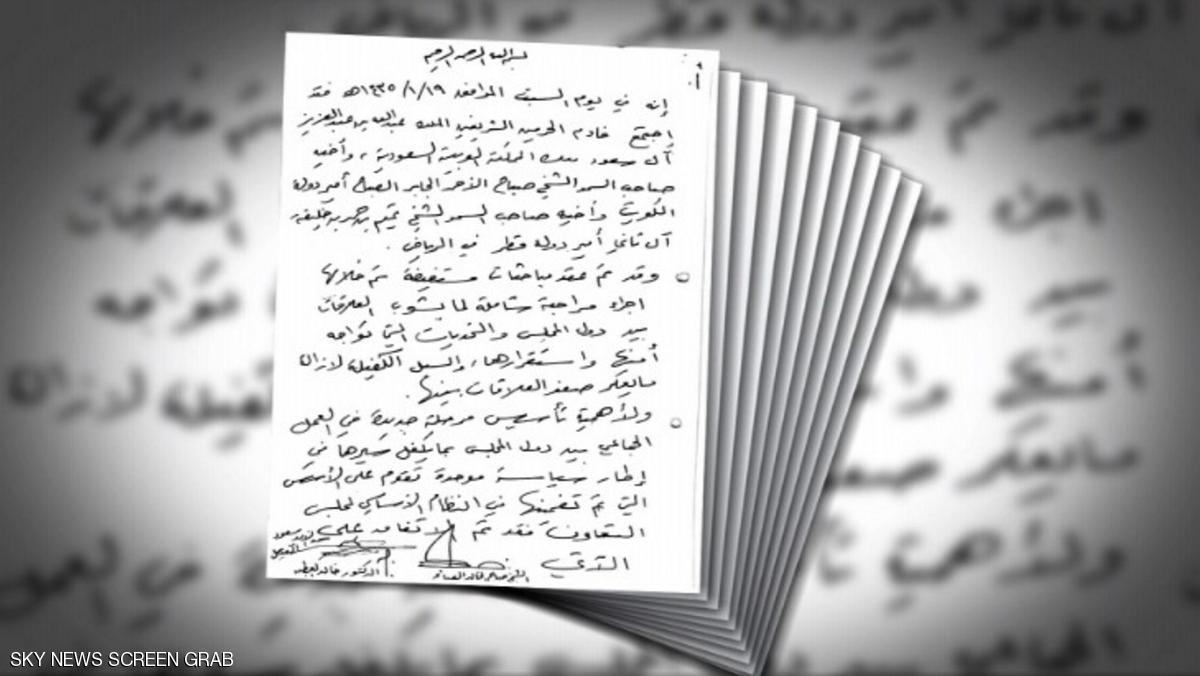 بسم الله الرحمن الرحيم
إنه في يوم السبت الموافق ١٤٣٥/١/١٩هـ فقد
اجتمع خادم الحرمين الشريفين الملك عبدالله بن عبدالعزيز
آل سعود ملك المملكة العربية السعودية، وأخيه
صاحب السمو الشيخ صباح الأحمد الجابر الصباح أمير دولة
الكويت وأخيه صاحب السمو الشيخ تميم بن حمد بن خليفة
آل ثاني أمير دولة قطر في الرياض.
وقد تم عقد مباحثات مستفيضة تم خلالها
اجراء مراجعة شاملة لما يشوب العلاقات
بين دول المجلس والتحديات التي تواجه
أمنها واستقرارها، والسبل الكفيلة لازالة
ما يعكر صفو العلاقات بينها.
ولأهمية تأسيس مرحلة جديدة في العمل
الجماعي بين دول المجلس بما يكفل سيرها في
إطار سياسة موحدة تقوم على الأسس
التي تم تضمينها في النظام الأساسي لمجلس
التعاون فقد تم الاتفاق على
التي
SKY NEWS SCREEN GRAB